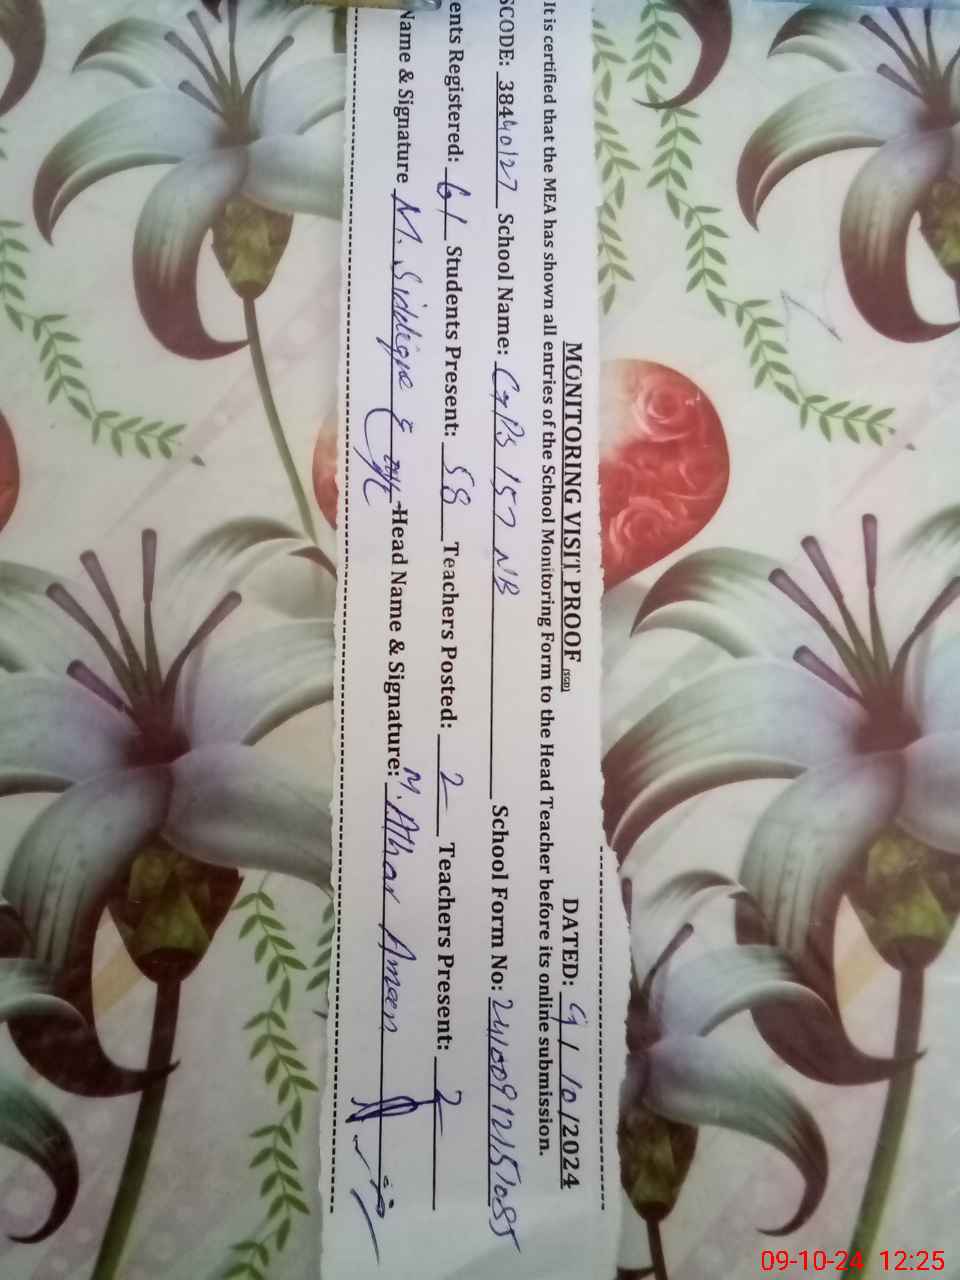 MONITORING VISIT PROOF (SGD) DATED: 9 / 10 /2024
It is certified that the MEA has shown all entries of the School Monitoring Form to the Head Teacher before its online submission.
SCODE: 38440127 School Name: GPS 157 NB School Form No:
ents Registered: 61 Students Present: 58 Teachers Posted: 2 Teachers Present: 2
Name & Signature M. Siddique Head Name & Signature: M. Athar Ameen
09-10-24 12:25